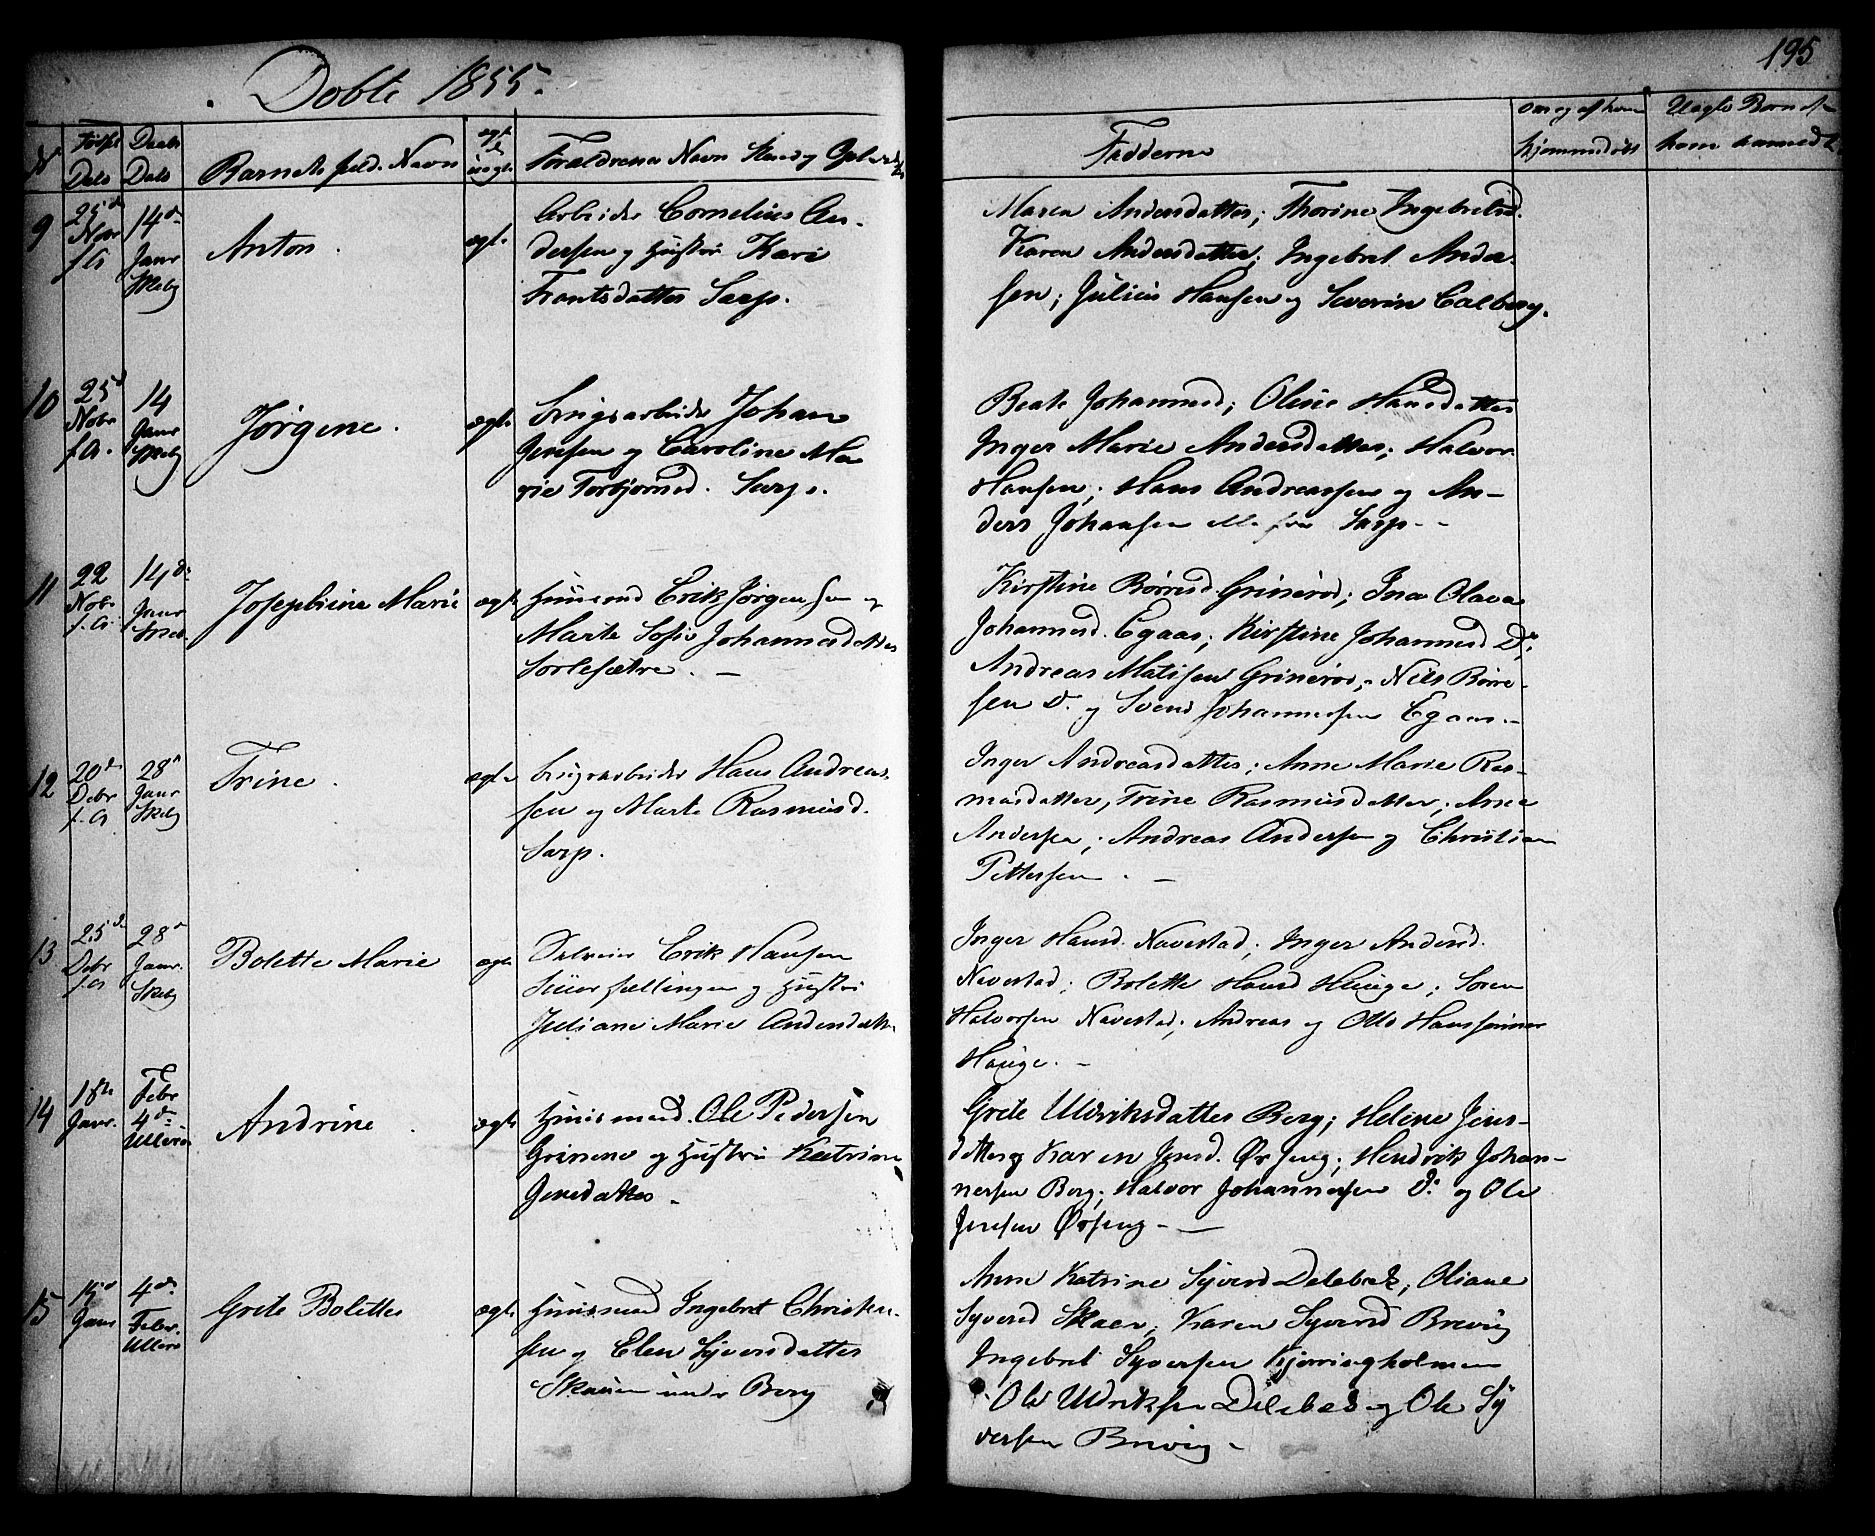 Døbte 1855.
195
No
Fødsels Dato
Daabs Dato
Barnets fulde Navn
ægte el. uægte
Forældrenes Navn Stand og Opholdssted
Fadderne
om og af hvem hjemmedøbt
Uægte Barn af hvem
9
25de Novbr f. A.
14de Januar Skeby
Anton.
ægte
Arbeider Cornelius An-
dersen og Hustru Kari
Frantsdatter Sarp.
Maren Andersdatter; Thorine Ingebretsd.
Karen Andersdatter; Ingebret Ander-
sen; Julius Hansen og Severin Calberg.
10
25d Novbr f. A.
14 Januar Skeby
Jørgine.
ægte
Brugsarbeider Johan
Jensen og Caroline Ma
rie Torbjørnsd. Sarp.
Beate Johannesd; Oline Hansdatter
Inger Marie Andersdatter; Halvor
Hansen; Hans Andreassen og An-
ders Johansen alle fra Sarp.
11
22 Novbr f. A.
14de Januar Skeb.
Josephine Marie
ægte
Huusmd Erik Jørgensen og
Marte Sofie Johannesdatter
Sorlesætre. —
Kirstine Børresd Grinerød; Ina Olava
Johannesd. Egaas; Kirstine Johannesd Do;
Andreas Matisen Grinerød; Nils Børre-
sen Do. og Svend Johannessen Egaas.
12
20de Decbr f. A.
28d Januar Skeby
Trine.
ægte
Brugsarbeider Hans Andreas-
sen og Marte Rasmusd.
Sarp.
Inger Andreasdatter; Anne Marie Ras-
musdatter, Trine Rasmusdatter; Arne
Andersen; Andreas Andersen og Christian
Pettersen. —
13
25de Decbr f. A.
28d Januar. Skeby
Bolette Marie
ægte
Selveier Erik Hansen
og Hustru
Juliane Marie Andersdatt.
Inger Hansd. Navestad; Inger Andersd.
Navestad; Bolette Hansd Hauge; Søren
Halvorsen Navestad; Andreas og Otto Hanssønner
Hauge. —
14
18de Januar.
Febr 4de Ullerø
Andrine.
ægte
Huusmand. Ole Pedersen
og Hustru Katrine
Jensdatter.
Grete Uldriksdatter Berg; Helene Jens-
datter og Karen Jensd. Ørseng; Hendrik Johan-
nessen Berg; Halvor Johannessen Do og Ole
Jensen Ørseng — —
15
15d Januar
4de Febr. Ullerø
Grete Bolette
ægte
Huusmand Ingebret Christen-
sen og Elen Syversdatter
Skauen under Berg
Anne Katrine Syversd Delebæk; Oliane
Syversd Skaen; Karen Syversd Brevig
Ingebret Syversen Kjerringholmen
Ole Uldriksen Delebæk og Ole Sy
versen Brevig